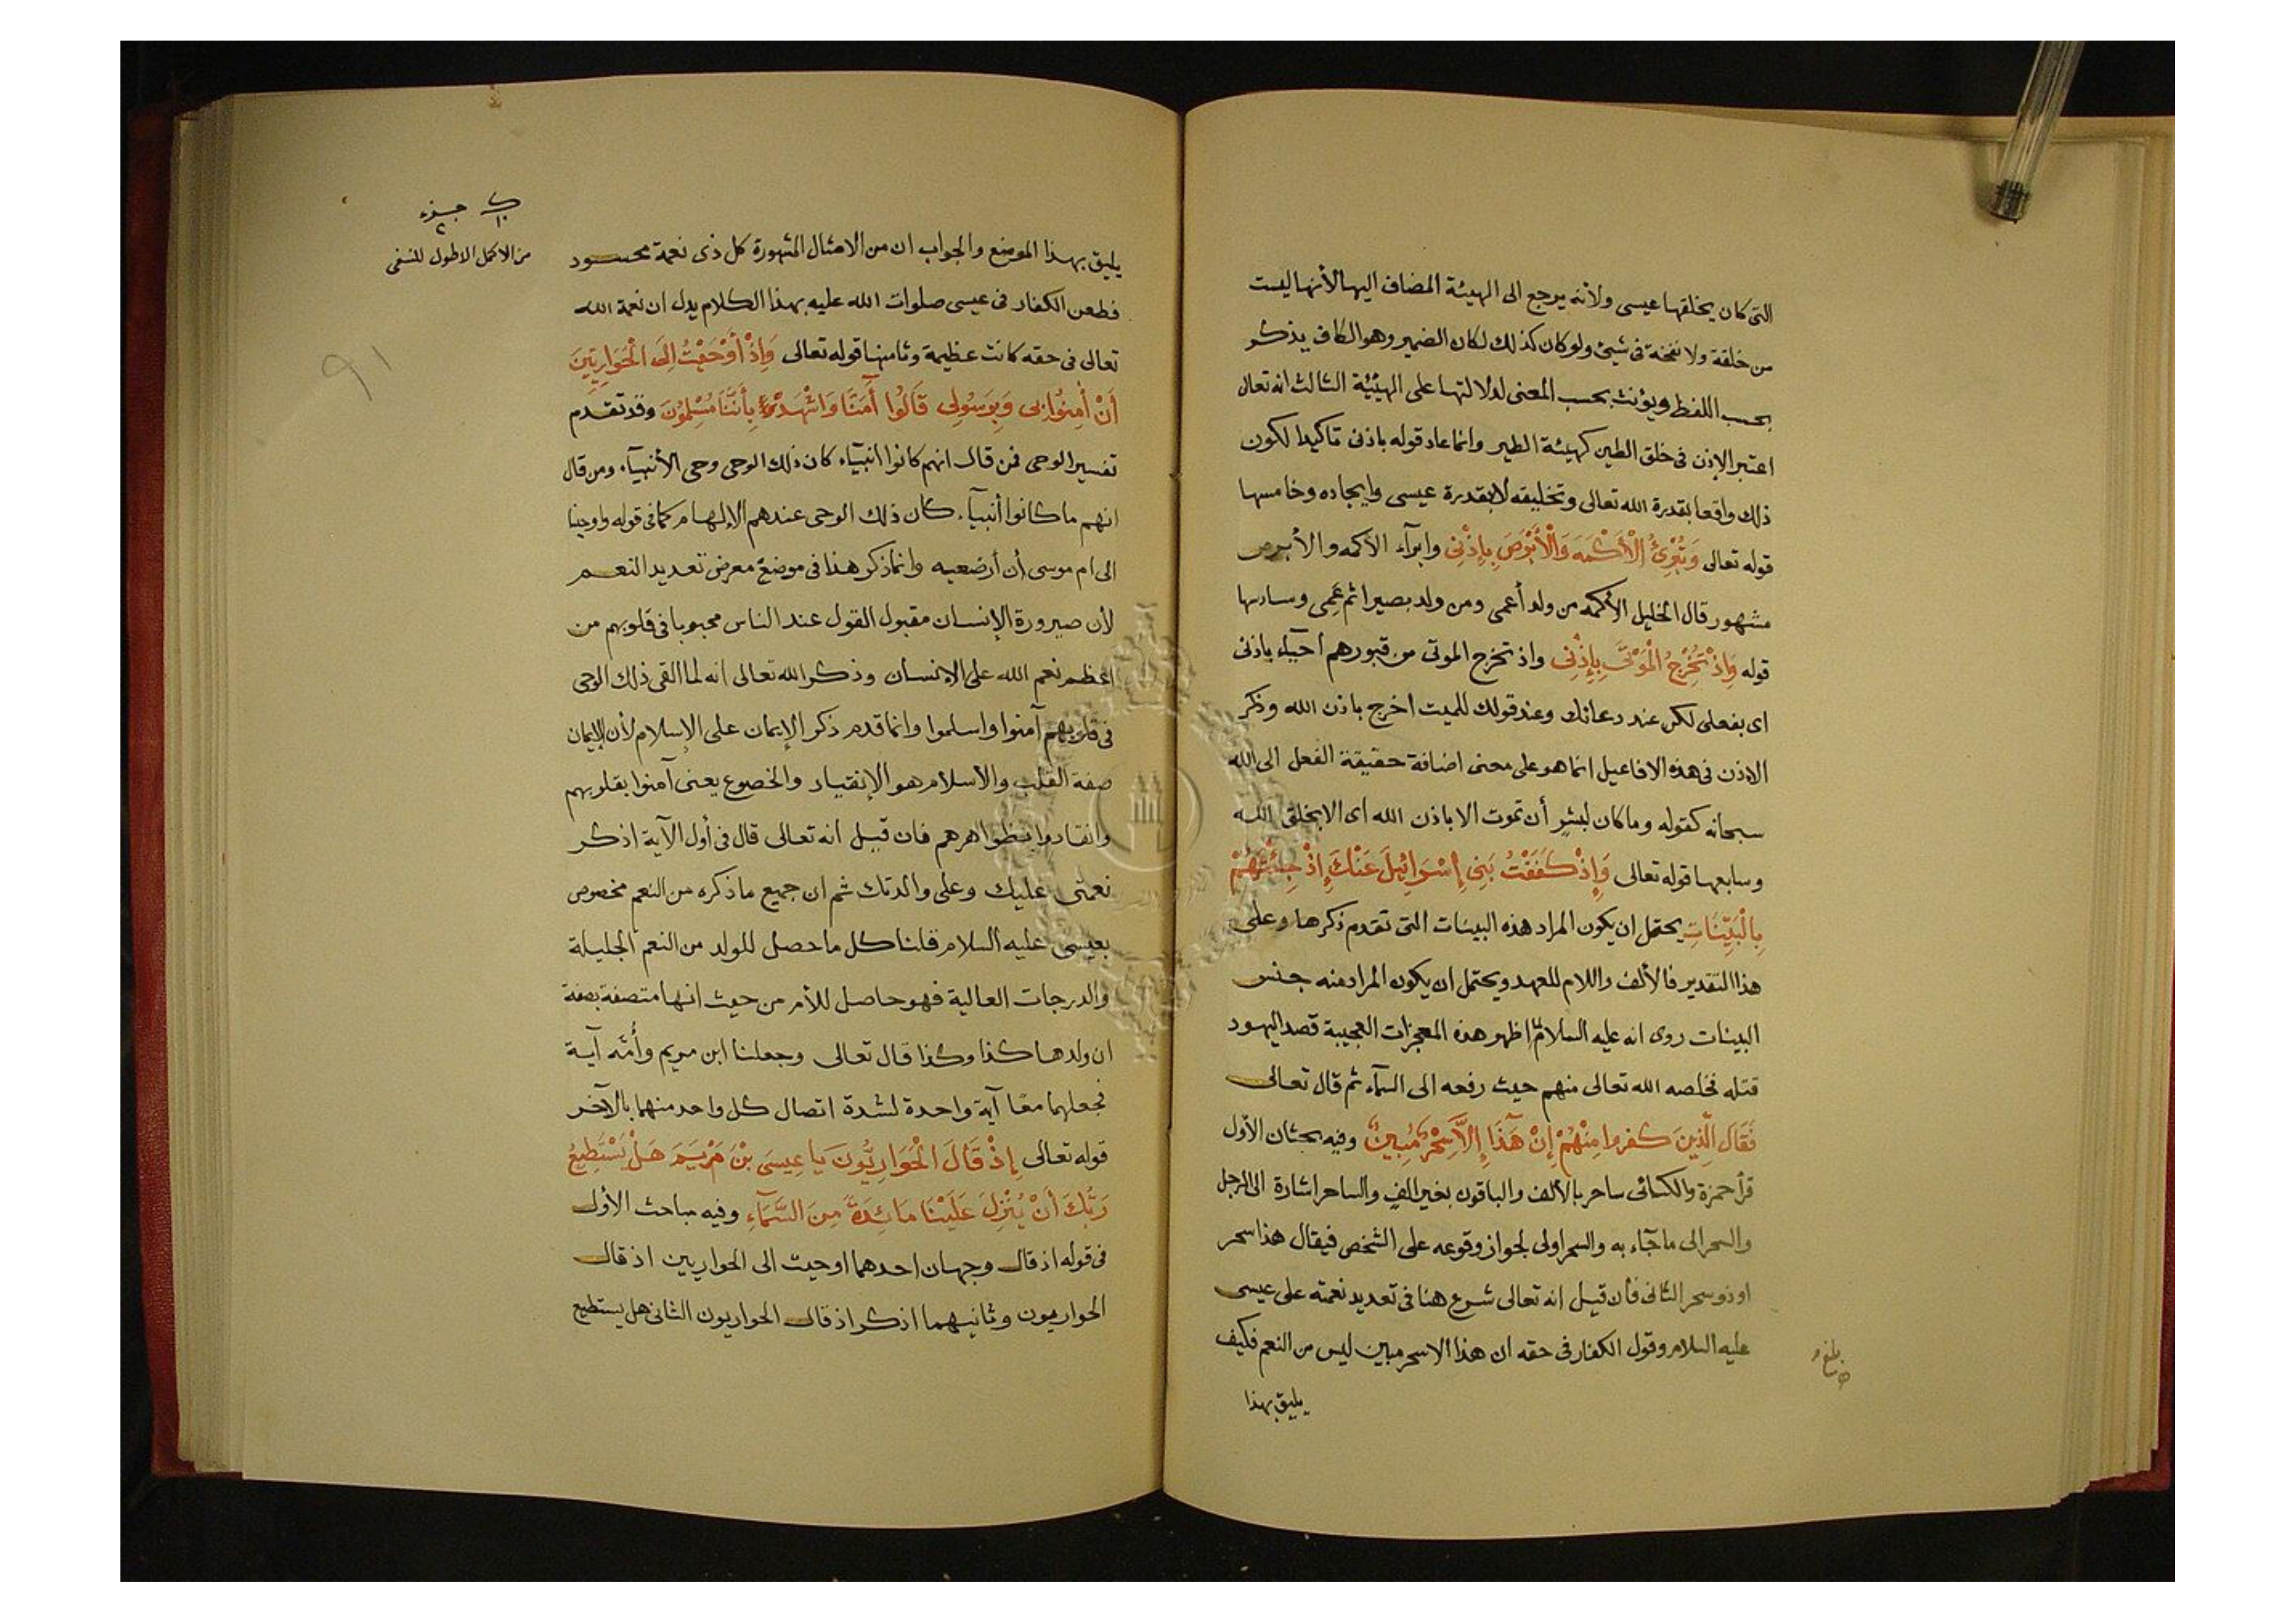 التى كان يخلقها عيسى ولأنه يرجع الى الهيئة المضاف اليها لأنها ليست
من خلقة ولا نفخة فى شيئ ولو كان كذلك لكان الضمير وهو الكاف يذكر
بحسب اللفظ ويؤنث بحسب المعنى لدلالتها على الهيئة الثالث انه تعالى
اعتبر الإذن فى خلق الطين كهيئة الطير وانما عاد قوله باذنى تاكيدا لكون
ذلك واقعا بقدرة الله تعالى وتخليقه لا بقدرة عيسى وايجاده وخامسها
قوله تعالى وَتُبْرِئُ الْأَكْمَهَ وَالْأَبْرَصَ بِإِذْنِى وابرآء الأكمه والأبرص
مشهور قال الخليل الأكمه من ولد أعمى ومن ولد بصيرا ثم عَمِى وسادسها
قوله وَإِذْ تُخْرِجُ الْمَوْتَى بِإِذْنِى واذ تخرج الموتى من قبورهم احيآء باذنى
اى بفعلى لكن عند دعائك وعند قولك للميت اخرج باذن الله وذكر
الاذن فى هذه الافاعيل انما هو على معنى اضافة حقيقة الفعل الى الله
سبحانه كقوله وما كان لبشرٍ أن تموت الا باذن الله اى الا بخلق الله
وسابعها قوله تعالى وَإِذْ كَفَفْتُ بَنِى إِسْرَائِيلَ عَنْكَ إِذْ جِئْتَهُمْ
بِالْبَيِّنَاتِ يحتمل ان يكون المراد هذه البينات التى تقدم ذكرها وعلى
هذا التقدير فالألف واللام للعهد ويحتمل ان يكون المراد منه جنس
البينات روى انه عليه السلام لما اظهر هذه المعجزات العجيبة قصد اليهود
قتله فخلصه الله تعالى منهم حيث رفعه الى السمآء ثم قال تعالى
فَقَالَ الَّذِينَ كفروا مِنْهُمْ إِنْ هَذَا إِلَّا سِحْرٌ مُبِينٌ وفيه بحثان الأول
قرأ حمزة والكسائى ساحر بالألف والباقون بغير الفٍ والساحر اشارة الى الرجل
والسحر الى ما جآء به والسحر اولى لجواز وقوعه على الشخص فيقال هذا سحر
او ذو سحر الثانى فأن قيل انه تعالى شرع هنا فى تعديد نعمته على عيسى
عليه السلام وقول الكفار فى حقه ان هذا الا سحر مبين ليس من النعم فكيف
يليق بهذا
من الاكمل الاطول للنسفى
يليق بهذا الموضع والجواب ان من الامثال المشهورة كل ذى نعمة محسود
فطعن الكفار فى عيسى صلوات الله عليه بهذا الكلام يدل ان نعمة الله
تعالى فى حقه كانت عظيمة وثامنها قوله تعالى وَإِذْ أَوْحَيْتُ إِلَى الْحَوَارِيِّينَ
أَنْ أٰمِنُوا بِى وَبِرَسُولِى قَالُوا آمَنَّا وَاشْهَدْ بِأَنَّنَا مُسْلِمُونَ وقد تقدم
تفسير الوحى فمن قال انهم كانوا انبيآء كان ذلك الوحى وحى الأنبيآء ومن قال
انهم ما كانوا أنبيآء كان ذلك الوحى عندهم الإلهام كما فى قوله واوحينا
الى ام موسى أن أرضعيه وانما ذكر هذا فى موضع معرض تعديد النعم
لأن صيرورة الإنسان مقبول القول عند الناس محبوبا فى قلوبهم من
اعظم نعم الله على الإنسان وذكر الله تعالى انه لما القى ذلك الوحى
فى قلوبهم آمنوا واسلموا وانما قدم ذكر الإيمان على الإسلام لأن الإيمان
صفة القلب والأسلام هو الإنقياد والخضوع يعنى آمنوا بقلوبهم
وانقادوا بظواهرهم فان قيل انه تعالى قال فى أول الآية اذكر
نعمتى عليك وعلى والدتك ثم ان جميع ما ذكره من النعم مخصوص
بعيسى عليه السلام قلنا كل ما حصل للولد من النعم الجليلة
والدرجات العالية فهو حاصل للأم من حيث انها متصفة بصفة
ان ولدها كذا وكذا قال تعالى وجعلنا ابن مريم وأُمَّه آية
فجعلهما معًا آية واحدة لشدة اتصال كل واحد منهما بالآخر
قوله تعالى إِذْ قَالَ الْحَوَارِيُّونَ يَا عِيسَى بْنَ مَرْيَمَ هَلْ يَسْتَطِيعُ
رَبُّكَ أَنْ يُنْزِلَ عَلَيْنَا مَائِدَةً مِنَ السَّمَآءِ وفيه مباحث الأول
فى قوله اذ قال وجهان احدهما اوحيت الى الحواريين اذ قال
الحواريون وثانيهما اذكر اذ قال الحواريون الثانى هل يستطيع